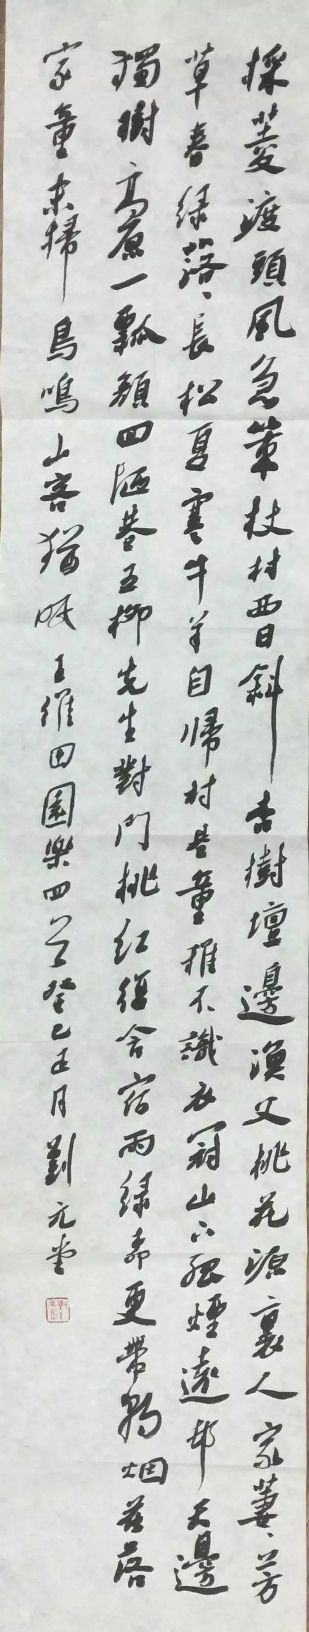 採菱渡頭風急策杖村西日斜杏樹壇邊漁父桃花源裏人家萋〻芳
草春緑落〻長松夏寒牛羊自歸村巷童稚不識衣冠山下孤煙遠邨天邊
獨樹高原一瓢顏回陋巷五柳先生對門桃紅復含宿雨緑柳更帶朝烟花落
家童未掃鳥鳴山客猶眠王維田園樂四首癸巳正月劉元堂